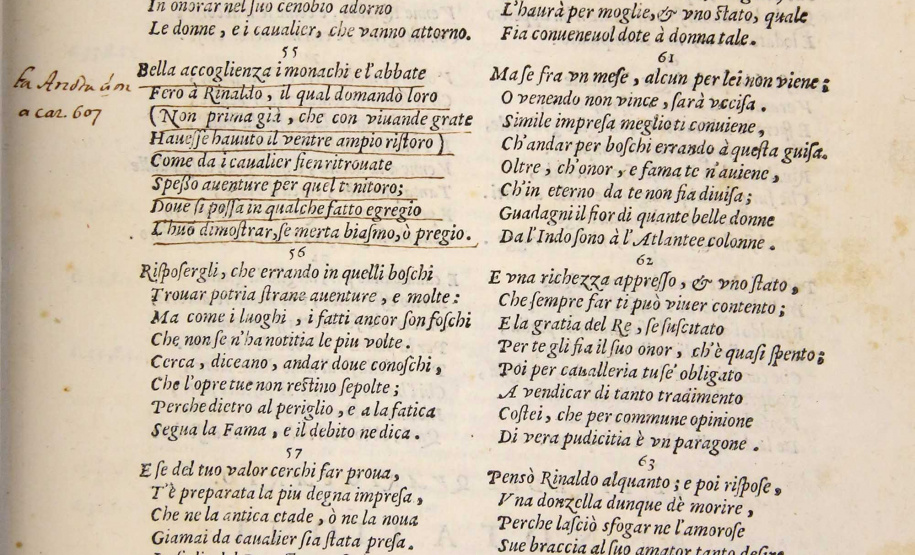 In onorar nel ſuo cenobio adorno
Le donne, e i caualier, che vanno attorno.
55
Bella accoglienza i monachi e l'abbate
Fero à Rinaldo, il qual domandò loro
(Non prima già, che con viuande grate
Haueſſe hauuto il ventre ampio riſtoro)
Come da i caualier ſien ritrouate
Speſſo auenture per quel tenitoro;
Doue ſi poſſa in qualche fatto egregio
L'huõ dimoſtrar, ſe merta biaſmo, ò pregio.
56
Riſpoſergli, che errando in quelli boſchi
Trouar potria ſtrane auenture, e molte:
Ma come i luoghi, i fatti ancor ſon foſchi
Che non ſe n'ha notitia le piu volte.
Cerca, diceano, andar doue conoſchi,
Che l'opre tue non reſtino ſepolte;
Perche dietro al periglio, e a la fatica
Segua la Fama, e il debito ne dica.
57
E ſe del tuo valor cerchi far proua,
T'è preparata la piu degna impreſa,
Che ne la antica etade, ò ne la noua
Giamai da caualier ſia ſtata preſa.
a car. 607
L'haurà per moglie, & vno ſtato, quale
Fia conueneuol dote à donna tale.
61
Ma ſe fra vn meſe, alcun per lei non viene;
O venendo non vince, ſarà vcciſa.
Simile impreſa meglio ti conuiene,
Ch'andar per boſchi errando à queſta guiſa.
Oltre, ch'onor, e fama te n'auiene,
Ch'in eterno da te non fia diuiſa;
Guadagni il fior di quante belle donne
Da l'Indo ſono à l'Atlantee colonne.
62
E vna richezza appreſſo, & vno ſtato,
Che ſempre far ti può viuer contento;
E la gratia del Re, ſe ſuſcitato
Per te gli fia il ſuo onor, ch'è quaſi ſpento;
Poi per caualleria tu ſe' obligato
A vendicar di tanto tradimento
Coſtei, che per commune opinione
Di vera pudicitia è vn paragone.
63
Pensò Rinaldo alquanto; e poi riſpoſe,
Vna donzella dunque dè morire,
Perche laſciò sfogar ne l'amoroſe
Sue braccia al ſuo amator tanto deſire